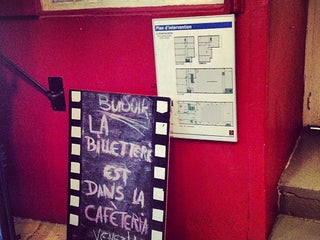 Plan d'intervention
BONJOUR
LA
BILLETTERIE
EST
DANS LA
CAFÉTERIA